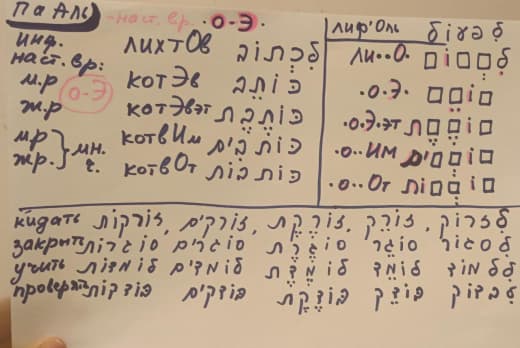 ПаАль -наст. вр. ·О-Э·
инф. лихтОв לִכְתּוֹב
наст. вр:
м.р О-Э котЭв כּוֹתֵב
ж.р котЭвэт כּוֹתֶבֶת
мр котвИм כּוֹתְבִים
жр. } мн. ч. котвОт כּוֹתְבוֹת
лиф'Оль לִפְעוֹל
ли··О· לִ□ְ□וֹ□
·О·Э· □וֹ□ֵ□
·О·Э·эт □וֹ□ֶ□ֶת
·О··Им □וֹ□ְ□ִים
·О··От □וֹ□ְ□וֹת
кидать לִזְרוֹק, זוֹרֵק, זוֹרֶקֶת, זוֹרְקִים, זוֹרְקוֹת
закрыть לִסְגוֹר סוֹגֵר סוֹגֶרֶת סוֹגְרִים סוֹגְרוֹת
учить לִלְמוֹד לוֹמֵד לוֹמֶדֶת לוֹמְדִים לוֹמְדוֹת
проверять לִבְדוֹק בּוֹדֵק בּוֹדֶקֶת בּוֹדְקִים בּוֹדְקוֹת